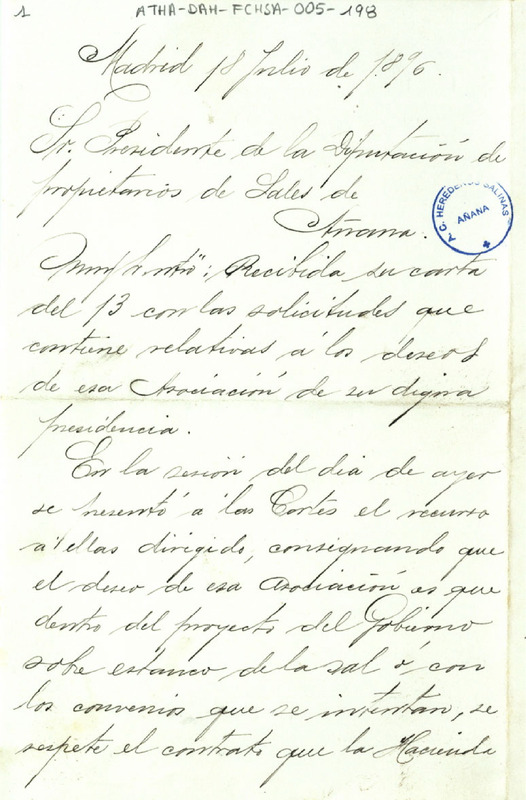 1 ATHA-DAH-FCHSA-005-198
Madrid 18 Julio de 1896.
Sr. Presidente de la Diputación de
propietarios de Sales de
Añana.
C. G. HEREDEROS SALINAS
AÑANA
Recibida su carta
del 13 con las solicitudes que
contiene relativas á los deseos
de esa Asociación de su digna
presidencia.
En la sesión del dia de ayer
se presentó á las Cortes el recurso
á ellas dirigido, consignando que
el deseo de esa Asociación es que
dentro del proyecto del Gobierno
sobre estanco de la sal ó con
los convenios que se intentan, se
respete el contrato que la Hacienda